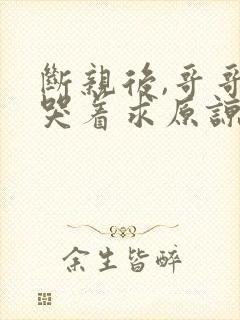 斷親後,哥哥
哭着求原諒
余生皆醉